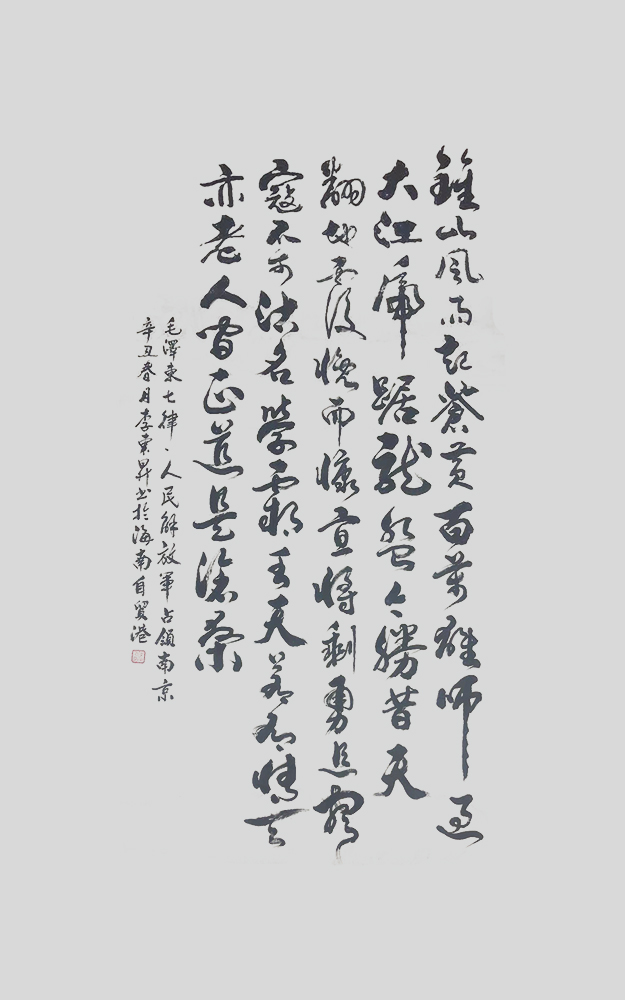 鍾山風雨起蒼黃百萬雄師過
大江虎踞龍盤今勝昔天
翻地覆慨而慷宜將剩勇追窮
寇不可沽名學霸王天若有情天
亦老人間正道是滄桑
毛澤東七律、人民解放軍占領南京
辛丑春月李東昇书於海南自貿港